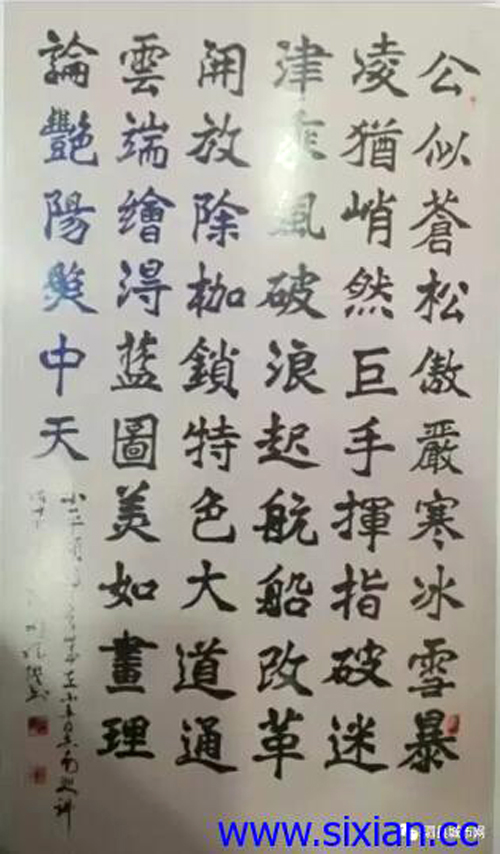 公似蒼松傲嚴寒冰雪暴
凌猶峭然巨手揮指破迷
津乘風破浪起航船改革
開放除枷鎖特色大道通
雲端繪得藍圖美如畫理
論艷陽熒中天
www.sixian.cc